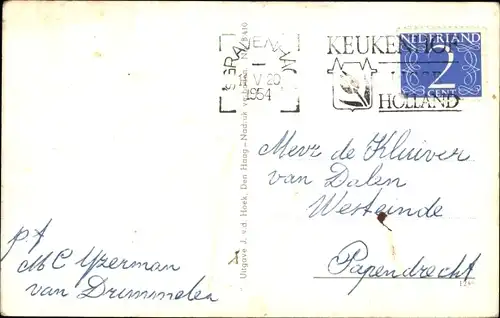 'S GRAVENHAGE
I
V 20
1954
KEUKENHOF
LISSE
HOLLAND
NEDERLAND
2
CENT
Uitgave J. v.d. Hoek, Den Haag - Nadruk verboden
Mevr de Kluiver
van Dalen
Westeinde
Papendrecht
p.f
M C Yzerman
van Drimmelen